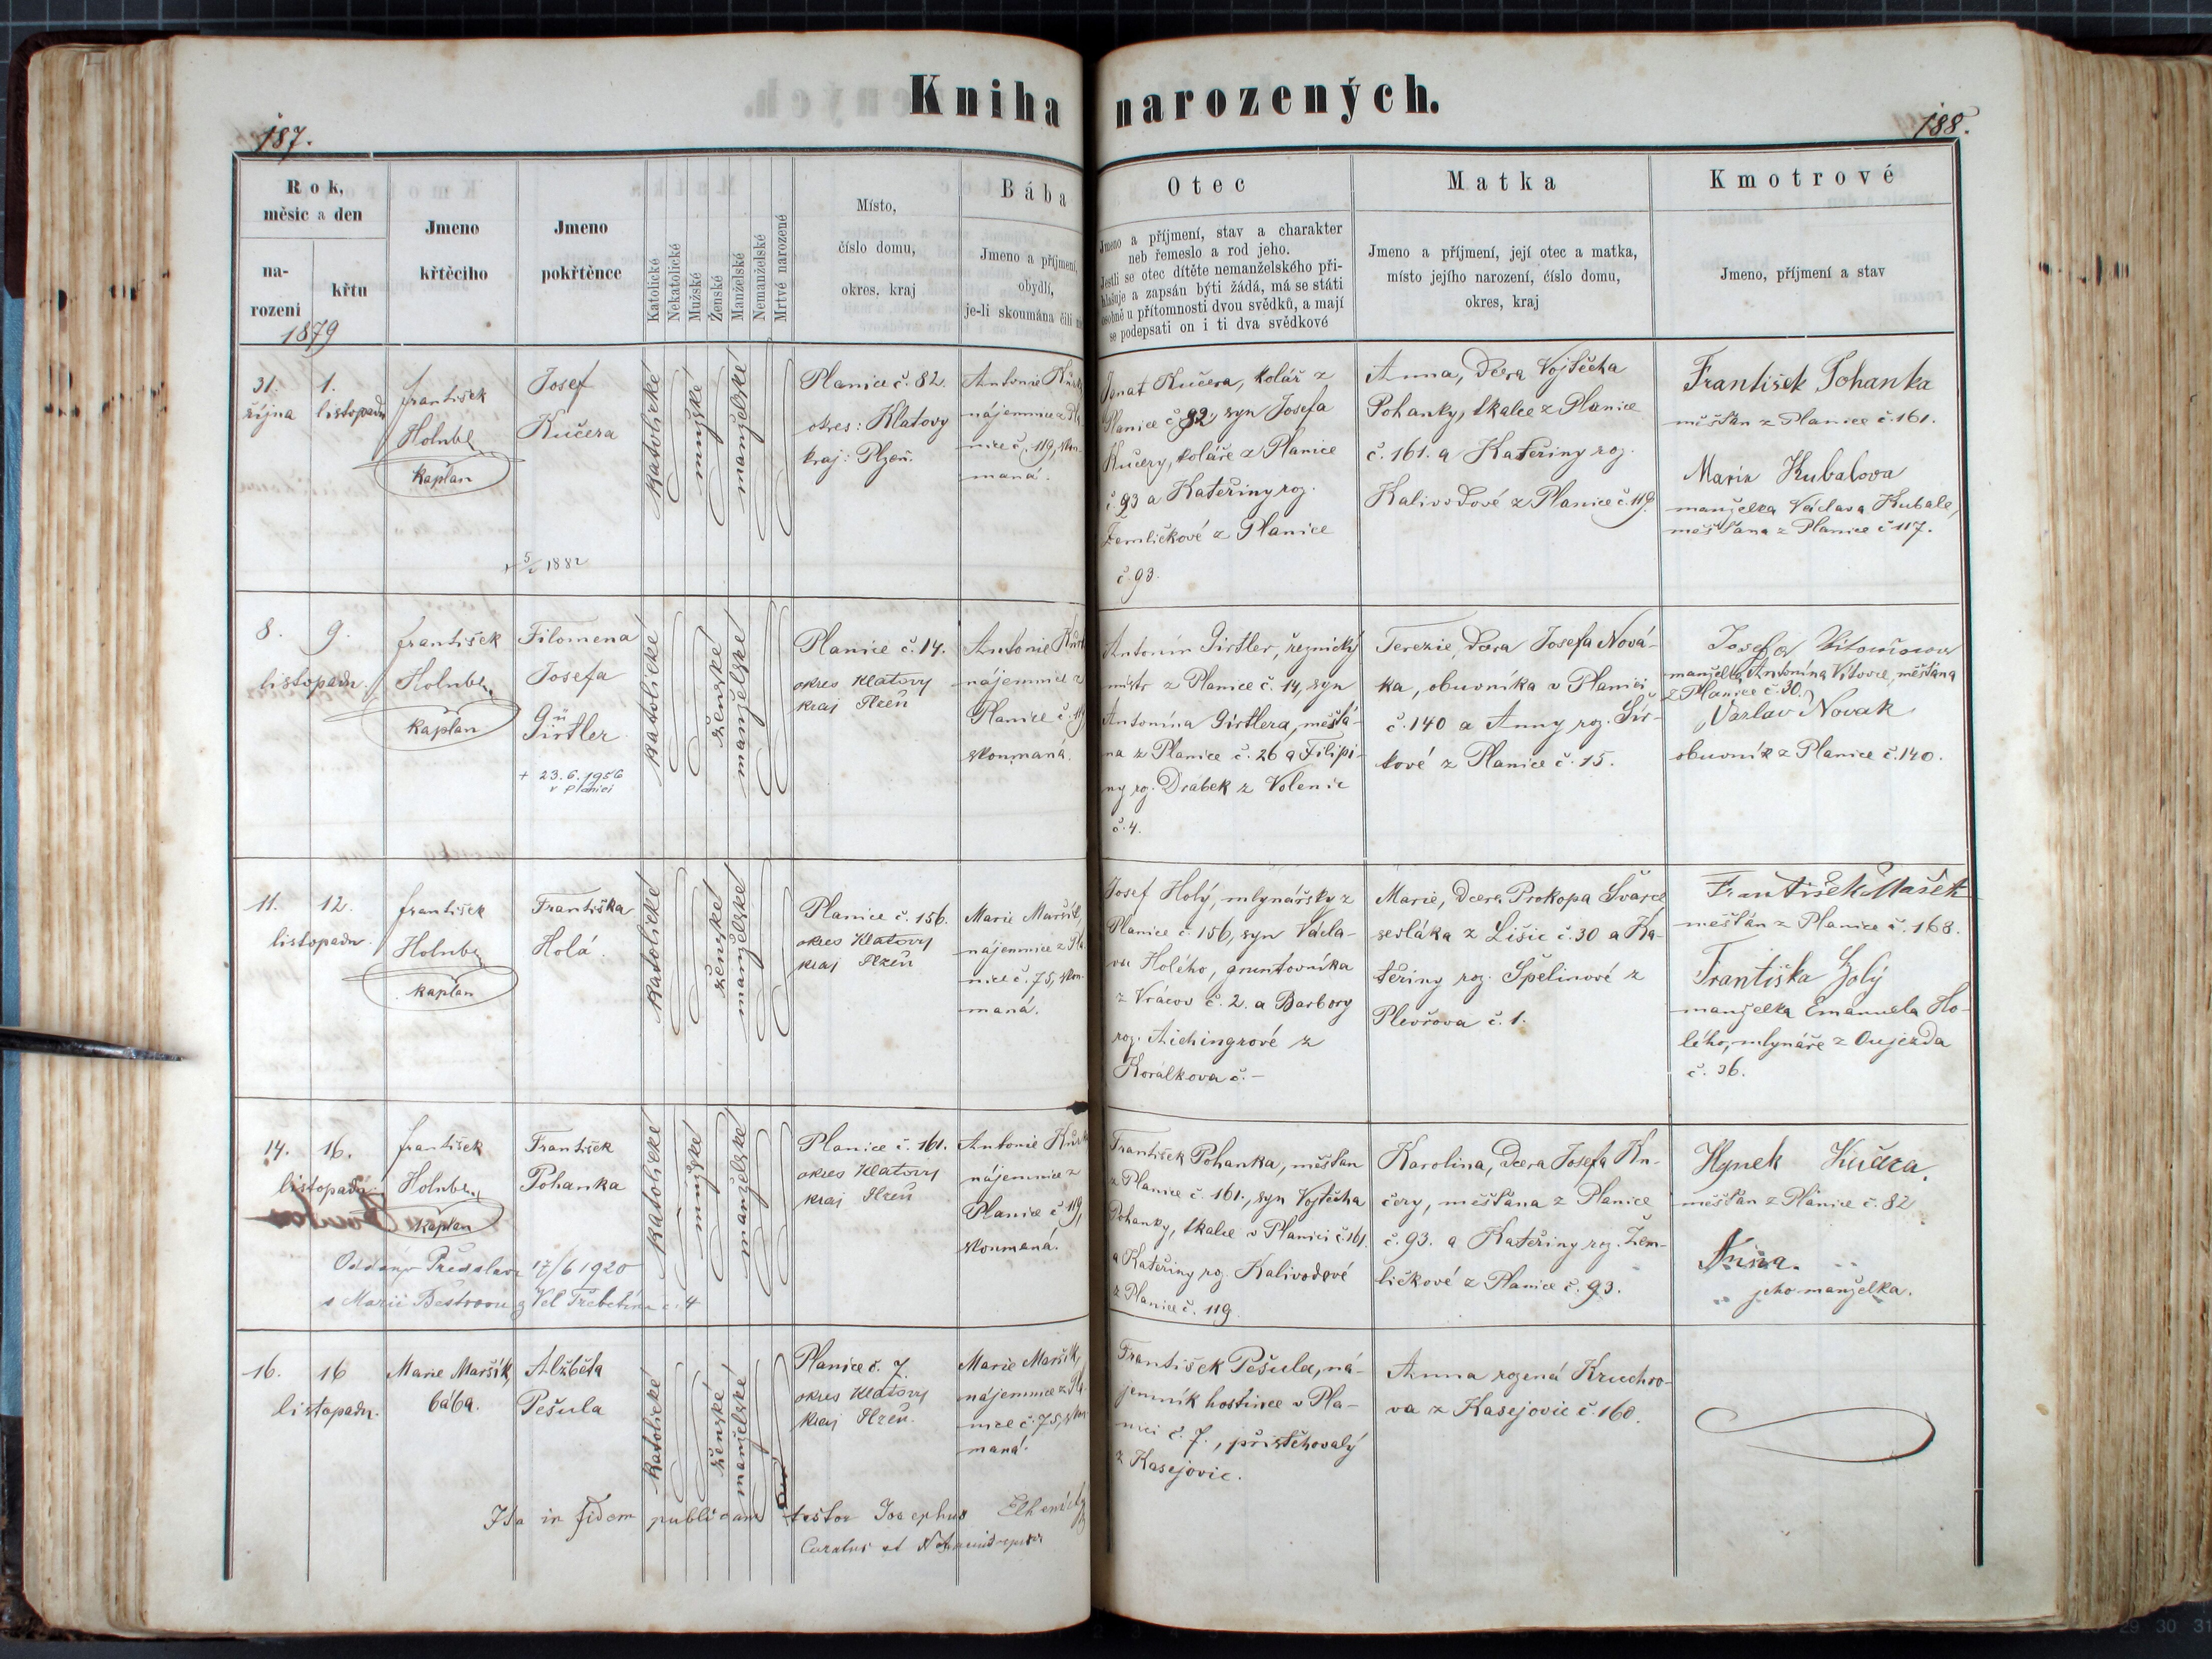 Kniha narozených.
187.
188.
Rok,
měsíc a den
na-
rození
křtu
1879
Jmeno
křtěcího
Jmeno
pokřtěnce
Katolické
Nekatolické
Mužské
Ženské
Manželské
Nemanželské
Mrtvě narozené
Místo,
číslo domu,
okres, kraj
Bába
Jmeno a příjmení,
obydlí,
je-li skoumána čili
Otec
Jmeno a příjmení, stav a charakter
neb řemeslo a rod jeho.
Jestli se otec dítěte nemanželského při-
hlašuje a zapsán býti žádá, má se státi
osobně u přítomnosti dvou svědků, a mají
se podepsati on i ti dva svědkové
Matka
Jmeno a příjmení, její otec a matka,
místo jejího narození, číslo domu,
okres, kraj
Kmotrové
Jmeno, příjmení a stav
31.
října
1.
listopadu
František
Holub
kaplan
Josef
Kučera
1882
katolické
mužské
manželské
Planice č. 82.
okres: Klatovy
kraj: Plzeň.
Antonie
nájemnice z Pla
nice č. 119, skou-
maná.
Ignat Kučera, kolář z
Planice č. 82, syn Josefa
Kučery, koláře z Planice
č. 93 a Kateřiny roz.
Žemličkové z Planice
č. 93.
Anna, dcera Vojtěcha
Pohanky, tkalce z Planice
č. 161. a Kateřiny roz.
Kalivodové z Planice č. 119.
František Pohanka
měšťan z Planice č. 161.
Marie Kubalova
manželka Václava Kubale,
měšťana z Planice č 117.
8.
9.
listopadu.
František
Holub
kaplan
Filomena
Josefa
ü
Girtler
+ 23.6.1956
v Plánici
katolické
ženské
manželské
Planice č. 14.
okres Klatovy
kraj Plzeň
Antonie
nájemnice z
Planice č. 119
skoumaná.
Antonín Girtler, řeznický
mistr z Planice č. 14, syn
Antonína Girtlera, měšťa-
na z Planice č. 26 a Filipi-
ny roz. Drábek z Volenic
č. 4.
Terezie, dcera Josefa Nová-
ka, obuvníka v Planici
č. 140 a Anny roz. Šir-
kové z Planice č. 15.
Josefa Vitovcova
manželka Antonína Vítovce, měšťana
z Planice č. 30.
Vazlav Novak
obuvník z Planice č. 140.
11.
12.
listopadu.
František
Holub
kaplan
Františka
Holá.
katolické
ženské
manželské
Planice č. 156.
okres Klatovy
kraj Plzeň
Marie Maršík,
nájemnice z Pla
nice č. 75, skou-
maná.
Josef Holý, mlynářský z
Planice č. 156, syn Václa-
va Holého, gruntovníka
z Vrácov č. 2. a Barbory
roz. Aichingrové z
Korálkova č. –
Marie, dcera Prokopa Švarce,
sedláka z Lišic č. 30 a Ka-
teřiny roz. Špelinové z
Plevšova č. 1.
František Mašek
měšťán z Planice č. 168.
Františka Holý
manželka Emanuela Ho-
lého, mlynáře z Oujezda
č. 36.
14.
16.
listopadu.
František
Holub
kaplan
František
Pohanka
Oddán v Předslavi 17/6 1920
s Marií Beštovou z Vel Třebětína č. 4
katolické
mužské
manželské
Planice č. 161.
okres Klatovy
kraj Plzeň
Antonie
nájemnice z
Planice č 119,
skoumaná.
František Pohanka, měšťan
z Planice č. 161., syn Vojtěcha
Pohanky, tkalce v Planici č. 161.
a Kateřiny roz. Kalivodové
z Planice č. 119.
Karolina, dcera Josefa Ku-
čery, měšťana z Planice
č. 93. a Kateřiny roz. Žem-
ličkové z Planice č. 93.
Hynek Kučera.
měšťan z Plánice č. 82
Anna.
jeho manželka.
16.
16
listopadu.
Marie Maršík,
bába.
Alžběta
Pešula
katolické
ženské
manželské
Planice č. 7.
okres Klatovy
kraj Plzeň.
Marie Maršík,
nájemnice z Pla
nice č. 75, skou
maná.
František Pešula, ná-
jemník hostince v Pla-
nici č. 7., přistěhovalý
z Kasejovic.
Anna rozená Kruchro-
va z Kasejovic č. 160.
Ita in fidem publicam testor Josephus
Curatus et